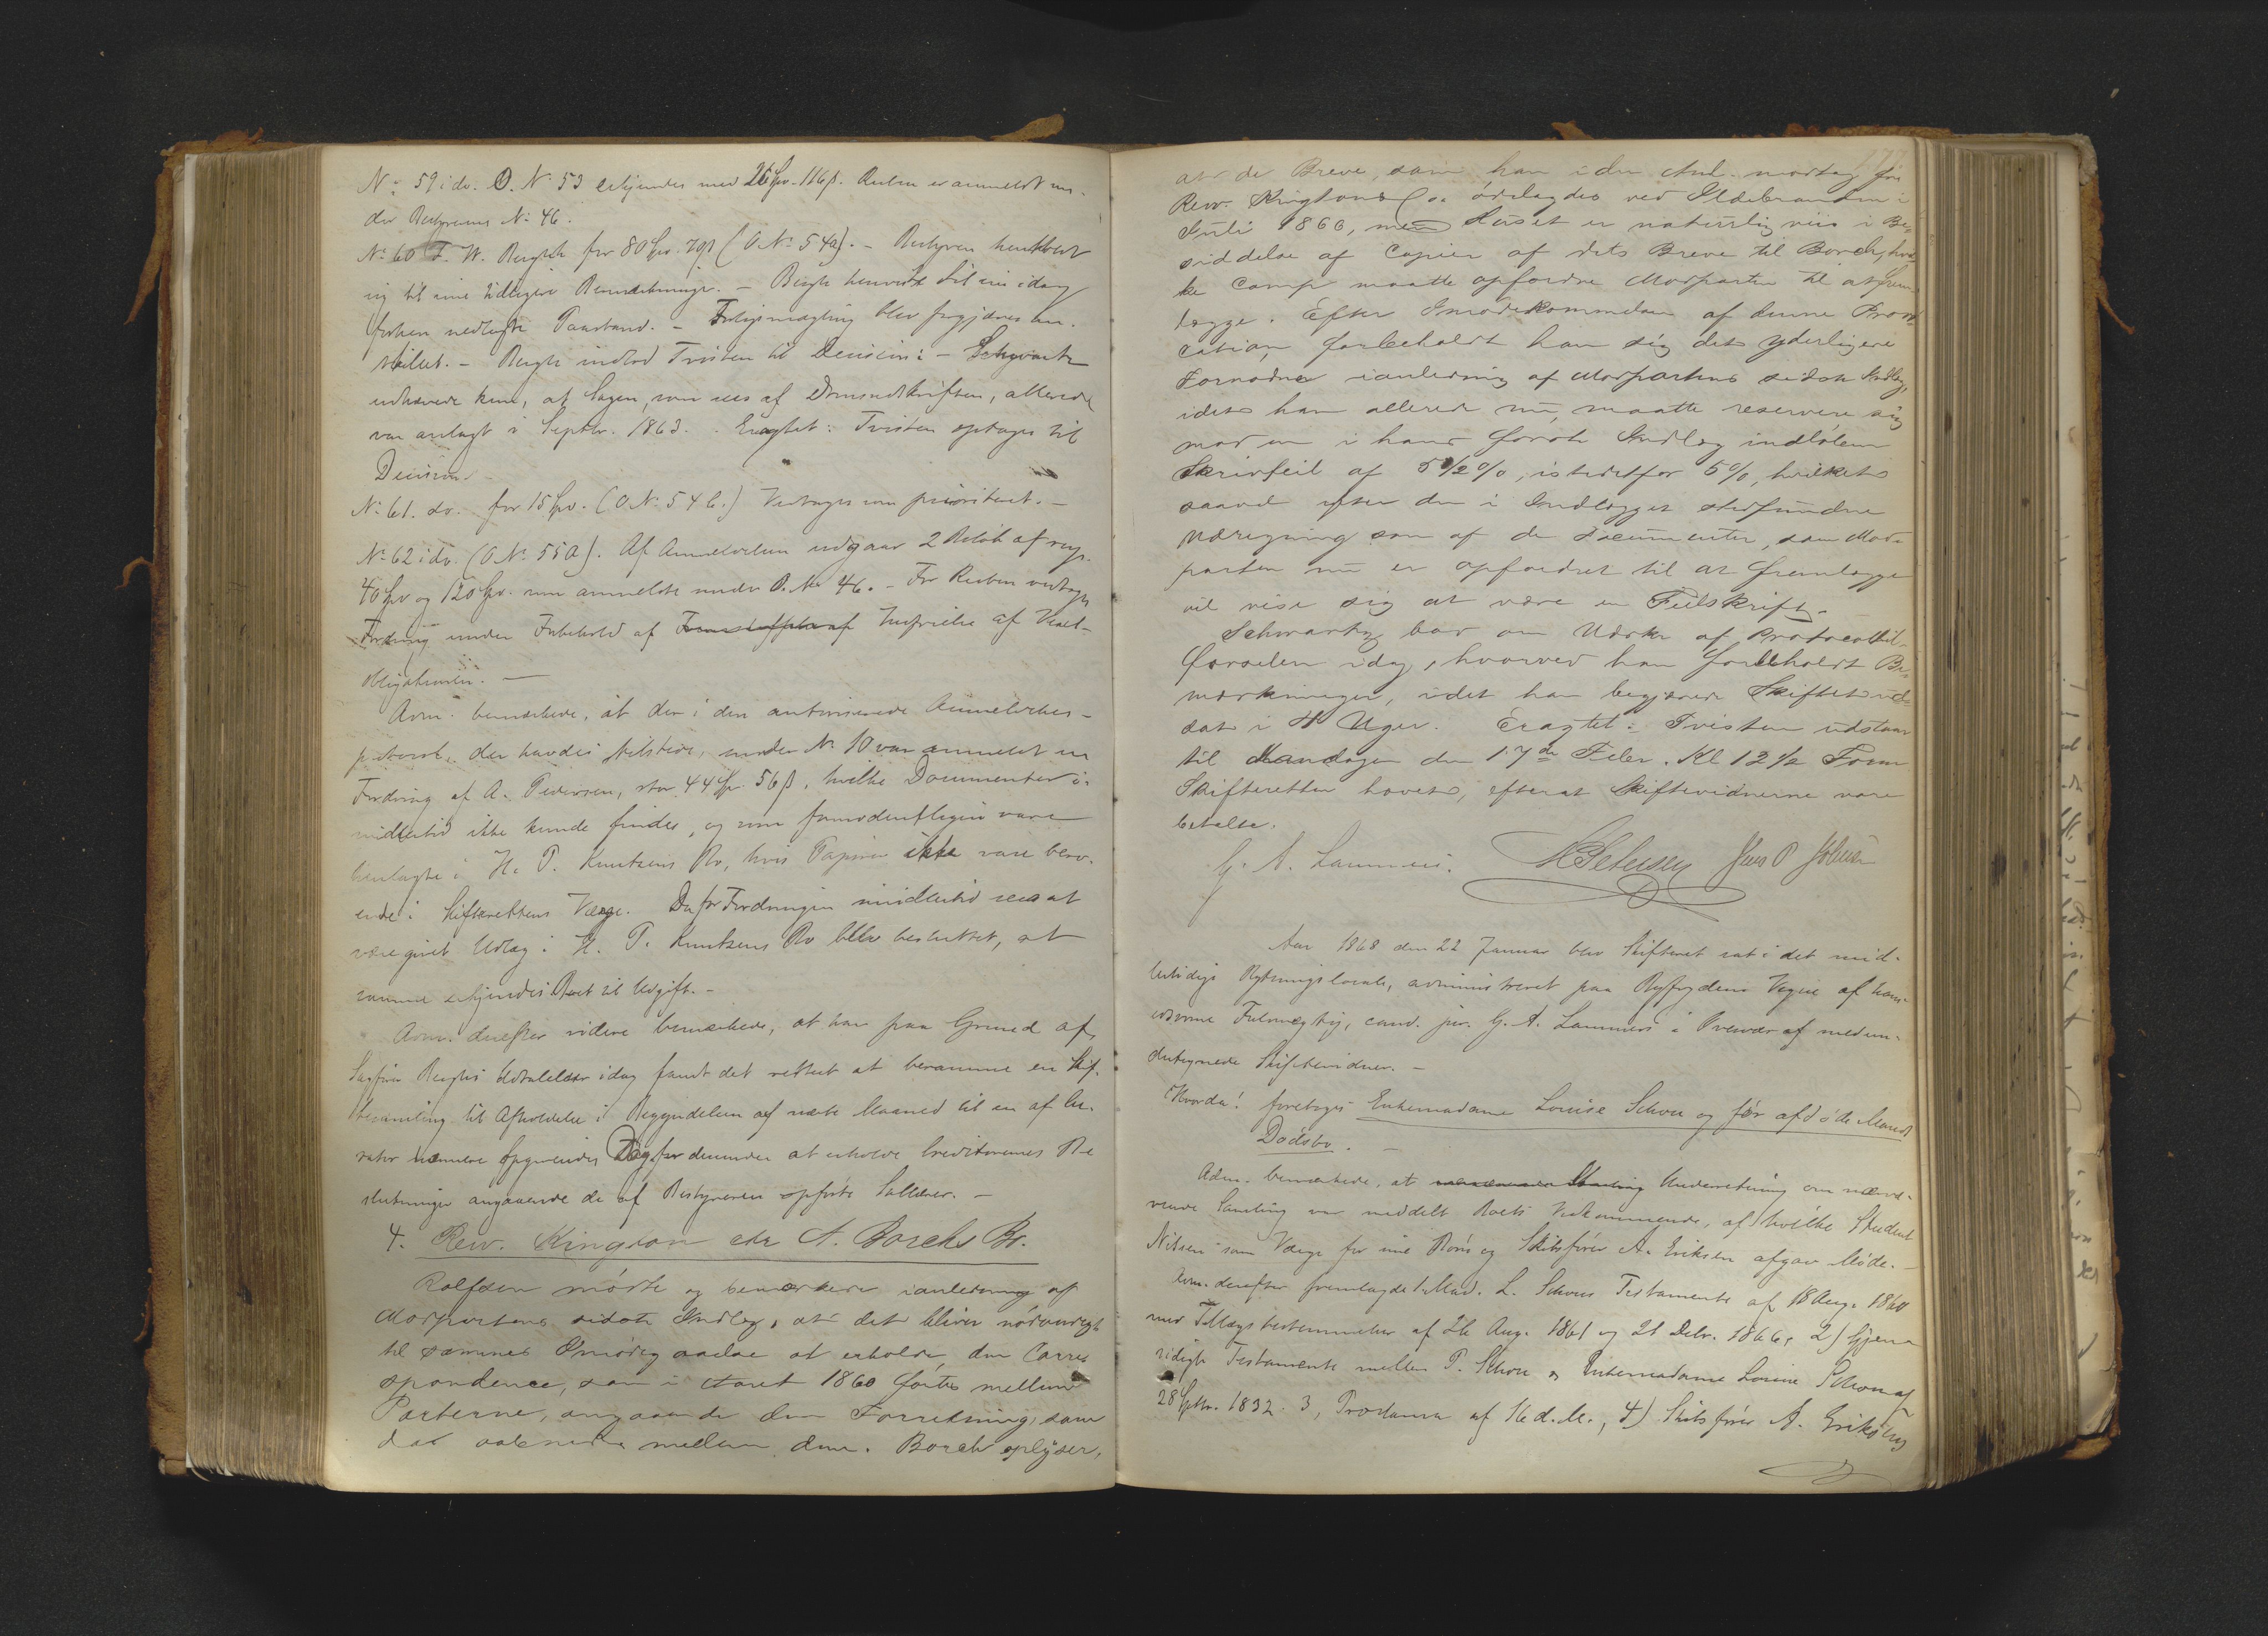 No 59 i do. O. No 53 erkjendes med 26 Spd. 116 β. Resten er anmeldt un-
der Bestyrerens No 46.
No 60 F. W. Bergh for 80 Spd. 70 β (O No 54a). - Bestyren henholdt
sig til sine tidligere Bemærkninger. - Bergh henviste til sin idag
forhen nedlagte Paastand. - Forligsmægling blev forgjæves an-
stillet. - Bergh indlod Tvisten til Decision: - Schwartz
udhævede kun, at Sagen, som sees af Domsudskriften, allerede
var anlagt i Septbr. 1863. - Eragtet: Tvisten optages til
Decision. -
No 61. do. for 15 Spd. (O No 54 b.) Vedtages som prioriteret. -
No 62 i do. (O No 55a). Af Anmeldelsen udgaar 2 Beløb af resp.
40 Spd og 120 Spd. som anmeldte under B. No 46. - For Resten vedtages
Fordring under Forbehold af Indfrielse af
obligationen. -
Adm. bemærkede, at der i den Anmeldelses-
der havdes tilstede, under No 10 var anmeldt en
Fordring af A. Pedersen, stor 44 Spd. 56 β, hvilke Documenter i-
midlertid ikke kunde findes, og som formodentligen vare
henlagte i H. P. Knutzens Bo, hvis Papirer ikke vare bero-
ende i Skifterettens Værge. Da for Fordringen imidlertid sees at
være givet Udlæg i H. P. Knutzens Bo blev besluttet, at
samme erkjendes Boet til Udgift. -
Adm. derefter videre bemærkede, at han paa Grund af
Sagfører Berghs Udtalelser idag fandt det rettest at beramme en Skif-
tesamling til Afholdelse i Begyndelsen af næste Maaned til en af Cu-
rator nærmere opgivendes Dag for derunder at erholde Creditorernes Be-
slutninger angaaende de af Bestyreren opførte Sallærer. -
4. Rew. Kingson ctr A. Borchs Bo.
Rolfsen mødte og bemærkede i anledning af
Modpartens sidste Indlæg, at det bliver nødvendigt
til sammes Imødegaaelse at erholde den Corre-
spondence, som i Aaret 1860 førtes mellem
Parterne, angaaende den Forretning, som
da aabnedes mellem dem. Borch oplyser,
at de Breve, som han i den Anl. modtog fra
Rew. Kingtons ødelagdes ved Ildebranden i
Juli 1866, men Huset er naturligviis i Be-
siddelse af Copier af dets Breve til Borch, hvil-
ke Comp maatte opfordre Modparten til at frem-
lægge. Efter Imødekommelsen af denne Provo-
cation forbeholdt han sig det yderligere
Fornødne i anledning af Modpartens sidste Indlæg,
idet han allerede nu maatte reservere sig
mod en i hans første Indlæg indløben
Skrivfeil af 5 1/2 %, istedetfor 5 %, hvilket
saavel efter den i Indlægget stedfundne
Udregning som af de Documenter, som Mod-
parten nu er opfordret til at fremlægge
vil vise sig at være en Feilskrift. -
Schwartz bad om Udskr af Protocoltil-
førselen idag, hvorved han forbeholdt Be-
mærkninger, idet han begjærede Skiftet ud-
sat i 4 Uger. Eragtet: Tvisten udstaar
til Mandagen den 17de Febr. Kl 12 1/2 Form
Skifteretten hævet, efterat Skiftevidnerne vare
betalte.
G. A. Lammers. Petersen Jens P Johnsen
Aar 1868 den 22 Januar blev Skifteret sat i det mid-
lertidige Bythingslocale, administreret paa Byfogdens Vegne af hans
edsvorne Fuldmægtig, cand. jur. G. A. Lammers i Overvær af medun-
dertegnede Skiftevidner. -
Hvorda! foretoges Enkemadame Louise Schou og før afdøde Mands
Dødsbo. -
Adm. bemærkede, at Underretning om nærvæ-
rende Samling var meddelt Boets Vedkommende, af hvilke Student
Nilsen som Værge for sine Børn og Skibsfører A. Eriksen afgav Møde. -
Adm. derefter fremlagde 1. Mad. L. Schous Testamente af 18 Aug. 1860
med Tillægsbestemmelser af 26 Aug. 1861 og 21 Debr. 1866, 2) Gjen-
sidigt Testamente mellem P. Schou og Enkemadame Louise Schou af
28 Septbr. 1832. 3, Proclama af 16 d. M., 4) Skibsfører A. Eriksens